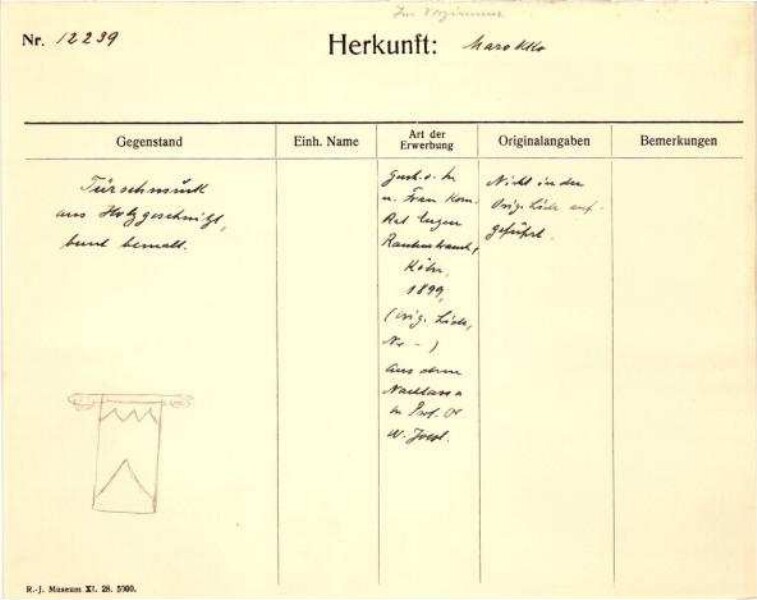 Nr. 12239
Herkunft: Marokko
Gegenstand
Einh. Name
Art der
Erwerbung
Originalangaben
Bemerkungen
Türschmuck
aus Holz geschnitzt,
bunt bemalt.
Gesch. v. H.
u. Frau Kom.
Rat Eugen
Rautenstrauch,
Köln,
1899,
(Orig. Liste,
Nr. - )
Aus dem
Nachlass
Prof. Dr
W. Joest.
Nicht in der
Orig. Liste auf-
geführt.
R.-J. Museum XI. 28. 5000.